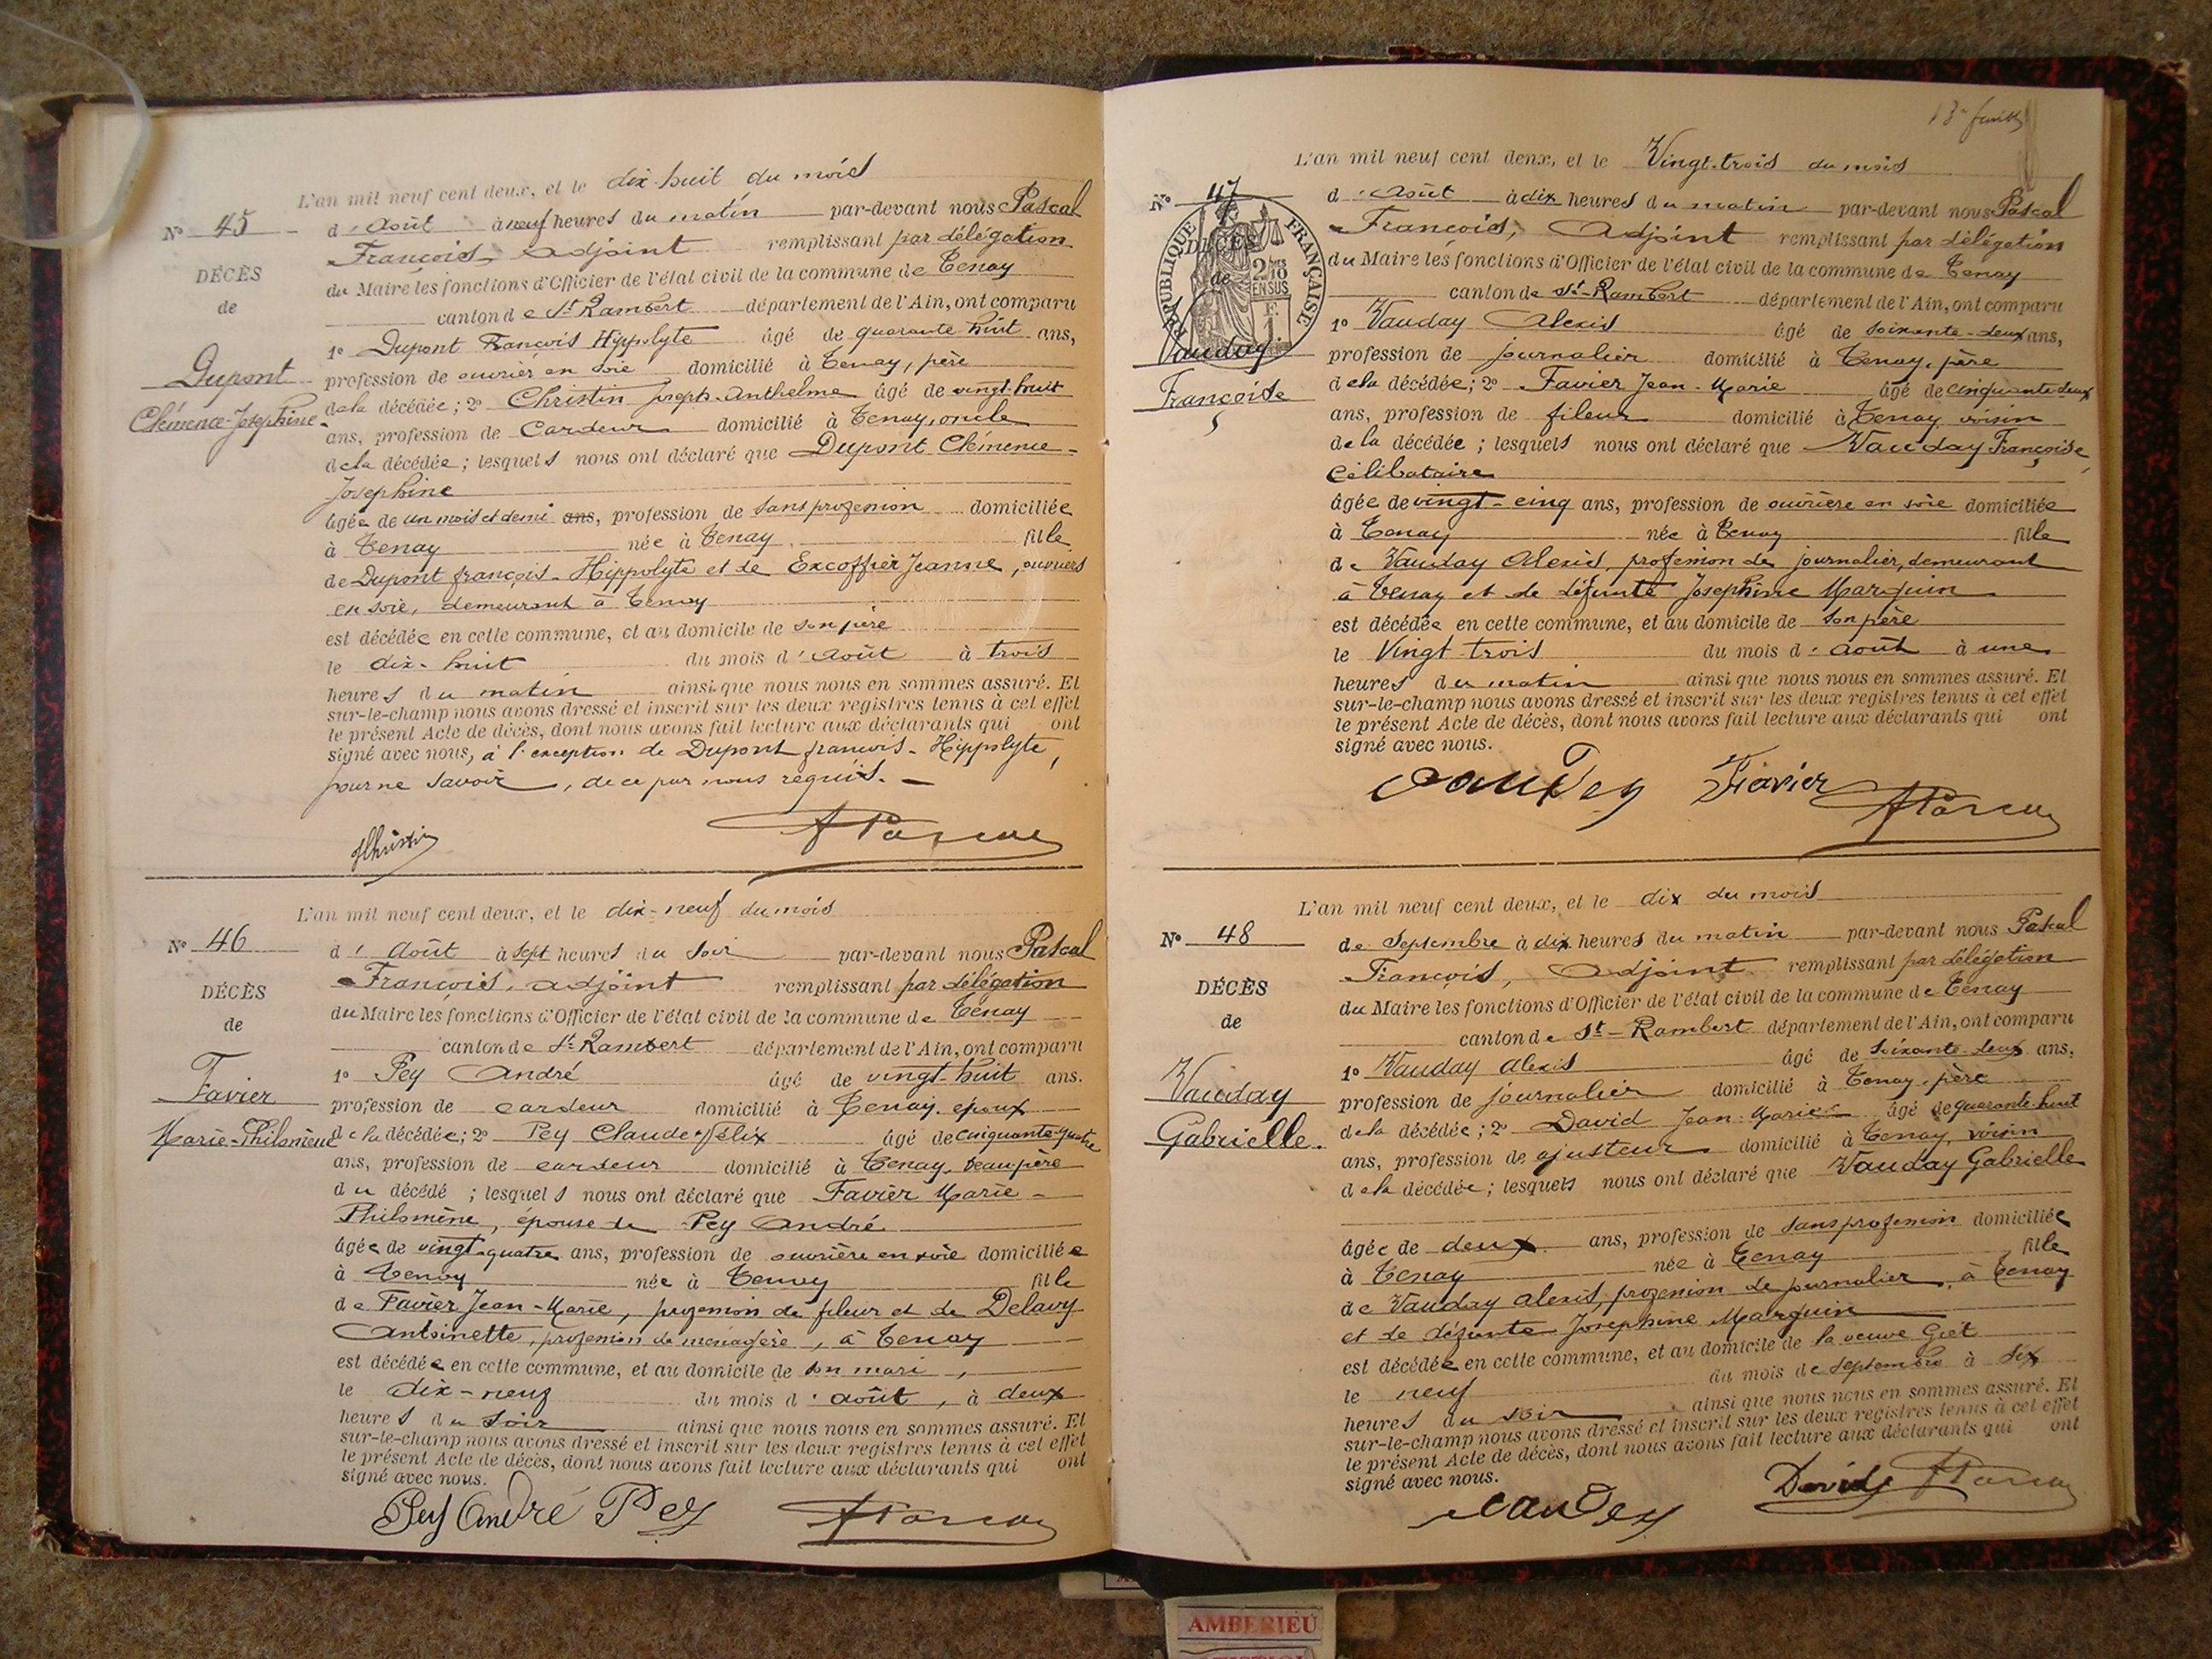 L'an mil neuf cent deux, et le dix-huit du mois
N° 45
d'Août à neuf heures du matin par-devant nous Pascal
François, Adjoint remplissant par délégation
DÉCÈS
du Maire les fonctions d'Officier de l'état civil de la commune de Tenay
de
canton de St Rambert département de l'Ain, ont comparu
1° Dupont François Hippolyte âgé de quarante huit ans,
Dupont
profession de ouvrier en soie domicilié à Tenay, père
Clémence-Joséphine
de la décédée; 2° Christin Joseph-Anthelme âgé de vingt-huit
ans, profession de Cardeur domicilié à Tenay, oncle
de la décédée; lesquels nous ont déclaré que Dupont Clémence-
Joséphine
âgée de un mois et demi ans, profession de sans profession domiciliée
à Tenay née à Tenay fille
de Dupont françois-Hippolyte et de Excoffier Jeanne, ouvriers
en soie, demeurant à Tenay
est décédée en cette commune, et au domicile de son père
le dix-huit du mois d'Août à trois
heures du matin ainsi que nous nous en sommes assuré. Et
sur-le-champ nous avons dressé et inscrit sur les deux registres tenus à cet effet
le présent Acte de décès, dont nous avons fait lecture aux déclarants qui ont
signé avec nous, à l'exception de Dupont françois-Hippolyte,
pour ne savoir, de ce par nous requis.
JChristin APascal
L'an mil neuf cent deux, et le dix-neuf du mois
N° 46
d'Août à sept heures du soir par-devant nous Pascal
François, adjoint remplissant par délégation
DÉCÈS
du Maire les fonctions d'Officier de l'état civil de la commune de Tenay
de
canton de St Rambert département de l'Ain, ont comparu
1° Pey André âgé de vingt-huit ans.
Favier
profession de cardeur domicilié à Tenay, époux
Marie-Philomène
de la décédée; 2° Pey Claude-Félix âgé de cinquante-quatre
ans, profession de cardeur domicilié à Tenay, beau père
du décédé ; lesquels nous ont déclaré que Favier Marie-
Philomène, épouse de Pey André
âgée de vingt-quatre ans, profession de ouvrière en soie domiciliée
à Tenay née à Tenay fille
de Favier Jean-Marie, profession de fileur et de Delavy
Antoinette, profession de ménagère, à Tenay
est décédée en cette commune, et au domicile de son mari,
le dix-neuf du mois d'août, à deux
heures du soir ainsi que nous nous en sommes assuré. Et
sur-le-champ nous avons dressé et inscrit sur les deux registres tenus à cet effet
le présent Acte de décès, dont nous avons fait lecture aux déclarants qui ont
signé avec nous.
Pey André Pey APascal
L'an mil neuf cent deux, et le Vingt-trois du mois
N° 47
d'Août à dix heures du matin par-devant nous Pascal
François, Adjoint remplissant par délégation
RÉPUBLIQUE FRANÇAISE
DÉCÈS
2/10 EN SUS
du Maire les fonctions d'Officier de l'état civil de la commune de Tenay
de
canton de St-Rambert département de l'Ain, ont comparu
1° Vauday Alexis âgé de soixante-deux ans,
Vauday
profession de journalier domicilié à Tenay, père
Françoise
de la décédée; 2° Favier Jean-Marie âgé de cinquante-deux
ans, profession de fileur domicilié à Tenay voisin
de la décédée; lesquels nous ont déclaré que Vauday Françoise,
Célibataire
âgée de vingt-cinq ans, profession de ouvrière en soie domiciliée
à Tenay née à Tenay fille
de Vauday Alexis, profession de journalier, demeurant
à Tenay et de défunte Joséphine Marquin
est décédée en cette commune, et au domicile de son père
le Vingt-trois du mois d'août à une
heures du matin ainsi que nous nous en sommes assuré. Et
sur-le-champ nous avons dressé et inscrit sur les deux registres tenus à cet effet
le présent Acte de décès, dont nous avons fait lecture aux déclarants qui ont
signé avec nous.
Vaudey Favier APascal
L'an mil neuf cent deux, et le dix du mois
N° 48
de Septembre à dix heures du matin par-devant nous Pascal
François, Adjoint remplissant par délégation
DÉCÈS
du Maire les fonctions d'Officier de l'état civil de la commune de Tenay
de
canton de St-Rambert département de l'Ain, ont comparu
1° Vauday Alexis âgé de soixante-deux ans,
Vauday
profession de journalier domicilié à Tenay, père
Gabrielle
de la décédée; 2° David Jean-Marie âgé de quarante-huit
ans, profession de ajusteur domicilié à Tenay, voisin
de la décédée; lesquels nous ont déclaré que Vauday Gabrielle
âgée de deux ans, profession de sans profession domiciliée
à Tenay née à Tenay fille
de Vauday Alexis, profession de journalier, à Tenay
et de défunte Joséphine Marquin
est décédée en cette commune, et au domicile de la veuve
le neuf du mois de septembre à six
heures du soir ainsi que nous nous en sommes assuré. Et
sur-le-champ nous avons dressé et inscrit sur les deux registres tenus à cet effet
le présent Acte de décès, dont nous avons fait lecture aux déclarants qui ont
signé avec nous.
Vaudey David APascal
AMBERIEU